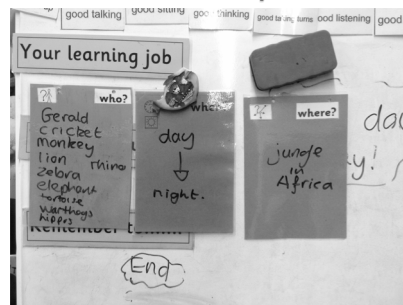 good talking
good sitting
good thinking
good taking turns
good listening
good
Your learning job
who?
Gerald
cricket
monkey
lion rhino
zebra
elephant
tortoise
warthogs
hippos
day
night.
where?
jungle
in
Africa
day
y!
Remember
End